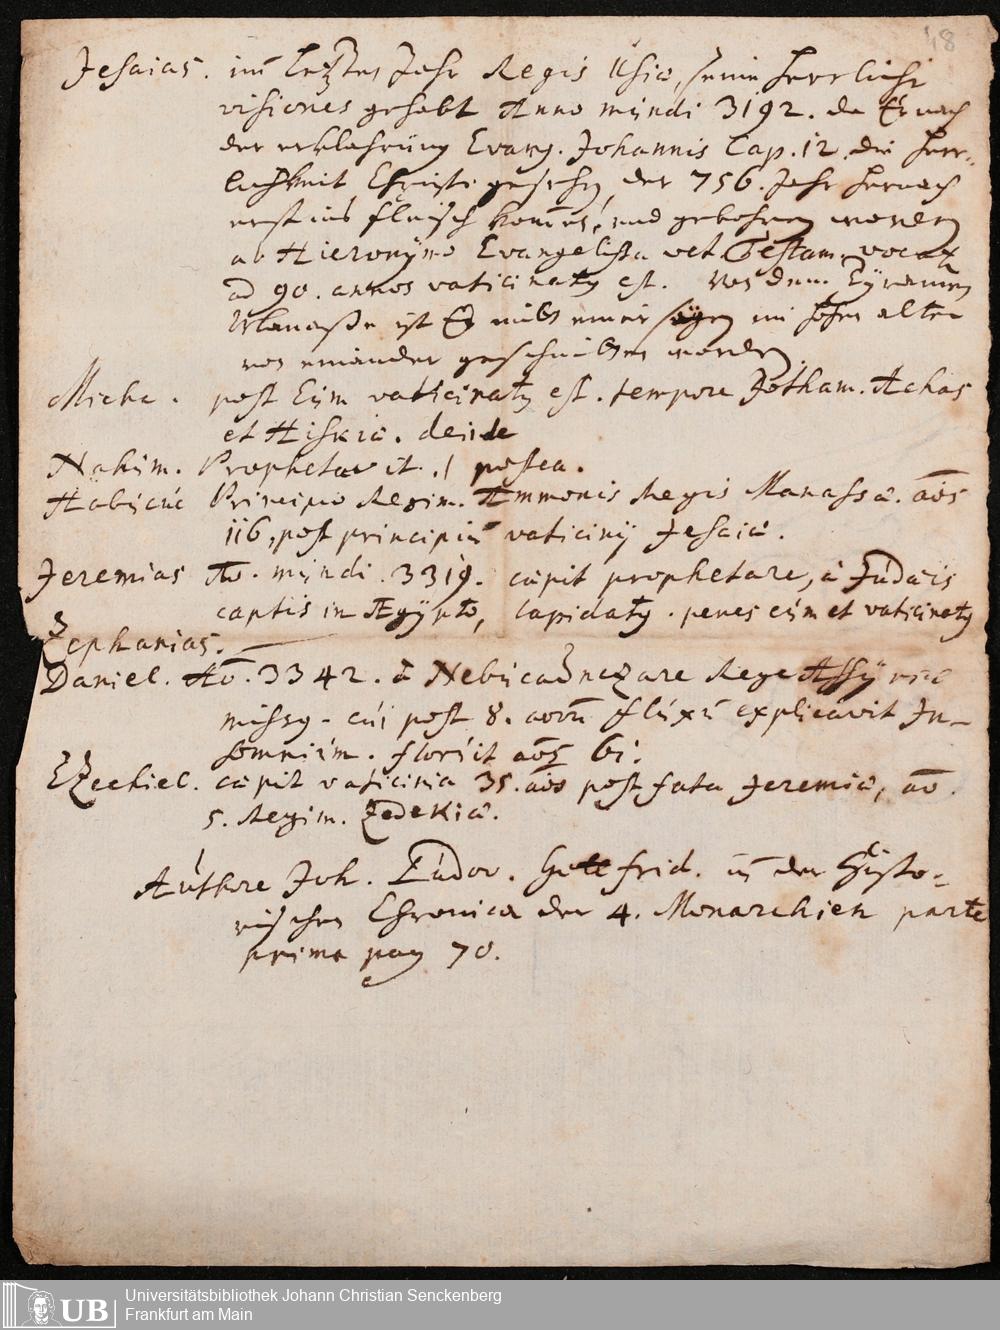 48
Jesaias. im letzten Jahr Regis Usiæ, seine herrliche
visiones gehabt Anno mundi 3192. da Er nach
der erklehrung Evang. Johannis Cap. 12. die Herr-
lichkeit Christi gesehen, der 756. Jahr hernach
erst ins fleisch kommen, und gebohren worden
ab Hieronymo Evangelista vet. Testam. vocat
ad 90. annos vaticinatus est. Von dem Tyrannen
Manasse ist Er mitt einer sägen im hohen alter
von einander geschnitten worden
Micha. post Eum vaticinatus est. tempore Jotham. Achas
et Hiskiæ. deinde
Nahum. Prophetavit. postea.
Habucuc Principio Regim. Ammonis Regis Manassæ. aōs
116. post principiū vaticinij Jesaiæ.
Jeremias Ao. mundi. 3319. cæpit prophetare, à Judæis
captis in Ægypto, lapidatus. penes eum et vaticinatus
Zephanias.
Daniel. Ao. 3342. à Nebucadnezare Rege Assyriæ
missus. cui post 8. annorū fluxū explicavit In-
somnium. floruit aōs 61.
Ezechiel. cæpit vaticinia 35. aōs post fata Jeremiæ, aō.
5. Regim. Zedekiæ.
Authore Joh. Ludov. Gottfrid. in der Histo-
rischen Chronica der 4. Monarchien parte
prima pag 70.
UB
Universitätsbibliothek Johann Christian Senckenberg
Frankfurt am Main